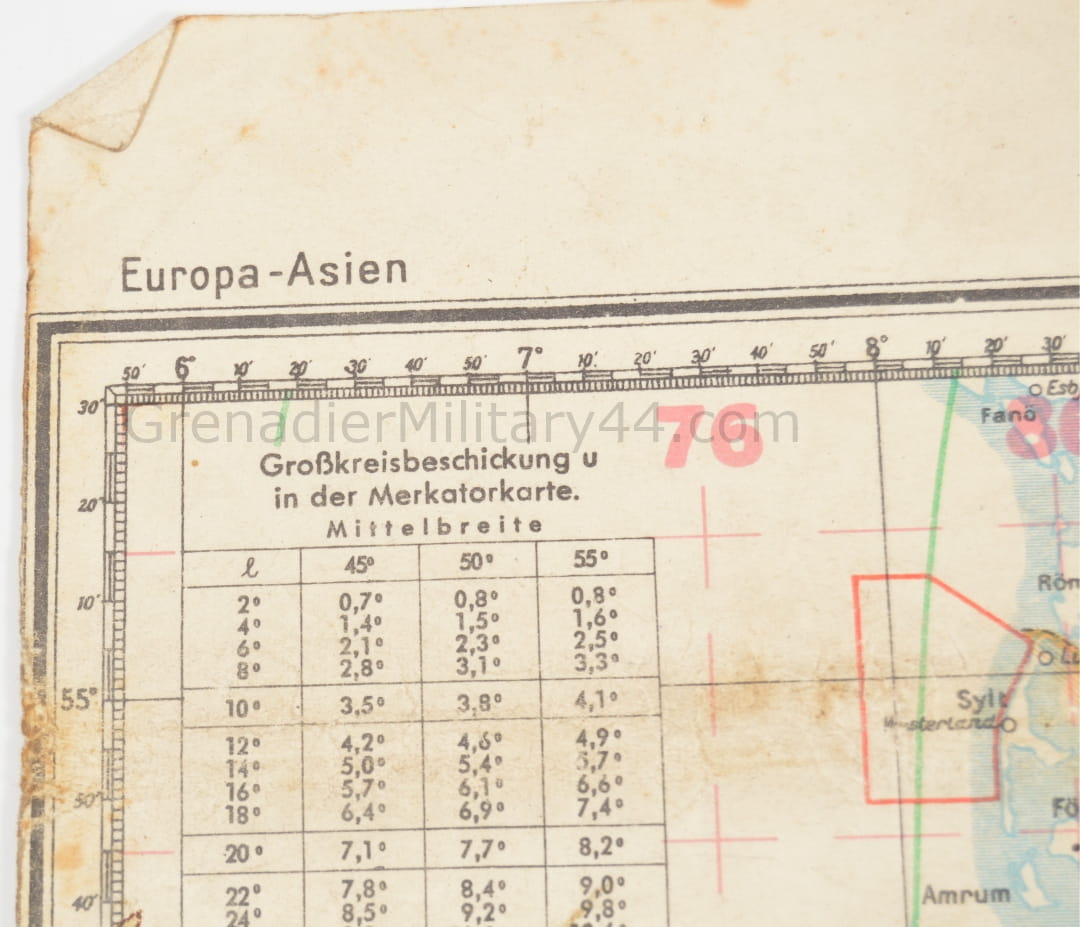 Europa-Asien
50' 6° 10' 20' 30' 40' 50' 7° 10' 20' 30' 40' 50' 8° 10' 20' 30'
30'
GrenadierMilitary44.com
76
Fanö
Großkreisbeschickung u
in der Merkatorkarte.
Mittelbreite
20'
ℓ 45° 50° 55°
10'
2° 0,7° 0,8° 0,8°
4° 1,4° 1,5° 1,6°
6° 2,1° 2,3° 2,5°
8° 2,8° 3,1° 3,3°
55°
10° 3,5° 3,8° 4,1°
Sylt
12° 4,2° 4,6° 4,9°
14° 5,0° 5,4° 5,7°
16° 5,7° 6,1° 6,6°
18° 6,4° 6,9° 7,4°
50'
20° 7,1° 7,7° 8,2°
22° 7,8° 8,4° 9,0°
24° 8,5° 9,2° 9,8°
40'
Amrum